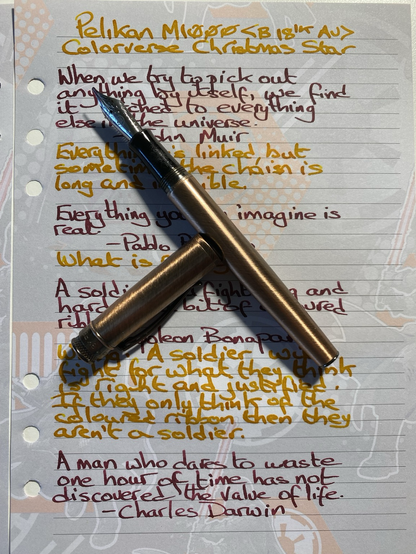 Pelikan M1000 <B 18ᴷ Au>
Colorverse Christmas Star
When we try to pick out
anything by itself, we find
it hitched to everything
else in the universe.
- John Muir
Everything is linked but
sometimes the chain is
long and
Everything you imagine is
real
-Pablo
What is
A soldier fight long and
hard bit of coloured
Napoleon Bonapar
A soldier
fight for what they think
is right and justified.
If they only think of the
coloured ribbon then they
aren't a soldier.
A man who dares to waste
one hour of time has not
discovered the value of life.
-Charles Darwin